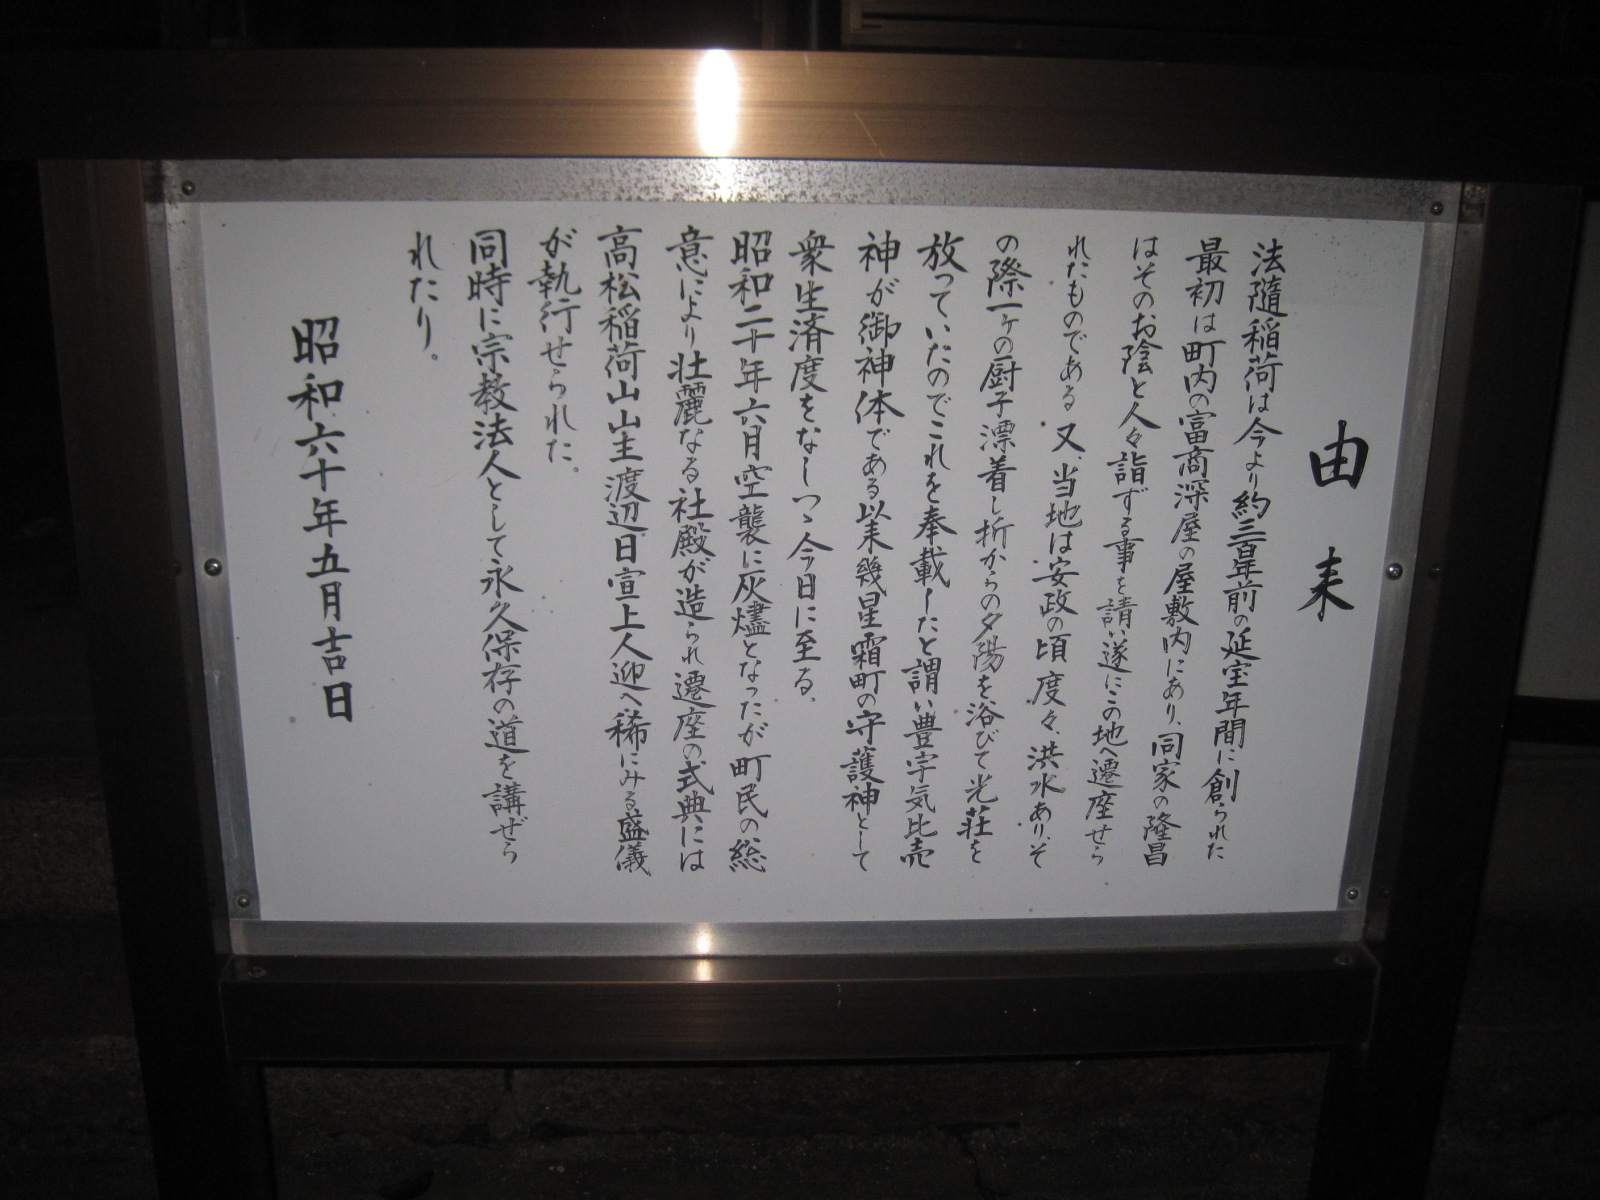 由来
法隨稲荷は今より約三百年前の延宝年間に創られた
最初は町内の富商深屋の屋敷内にあり、同家の隆昌
はそのお陰と人々詣ずる事を請い遂にこの地へ遷座せら
れたものである又、当地は安政の頃度々、洪水あり、そ
の際一ヶの厨子漂着し折からの夕陽を浴びて光荘を
放っていたのでこれを奉載したと謂い豊宇気比売
神が御神体である以来幾星霜町の守護神として
衆生済度をなしつゝ今日に至る。
昭和二十年六月空襲に灰燼となったが町民の総
意により壮麗なる社殿が造られ遷座の式典には
高松稲荷山山主渡辺日宣上人迎へ稀にみる盛儀
が執行せられた。
同時に宗教法人として永久保存の道を講ぜら
れたり。
昭和六十年五月吉日